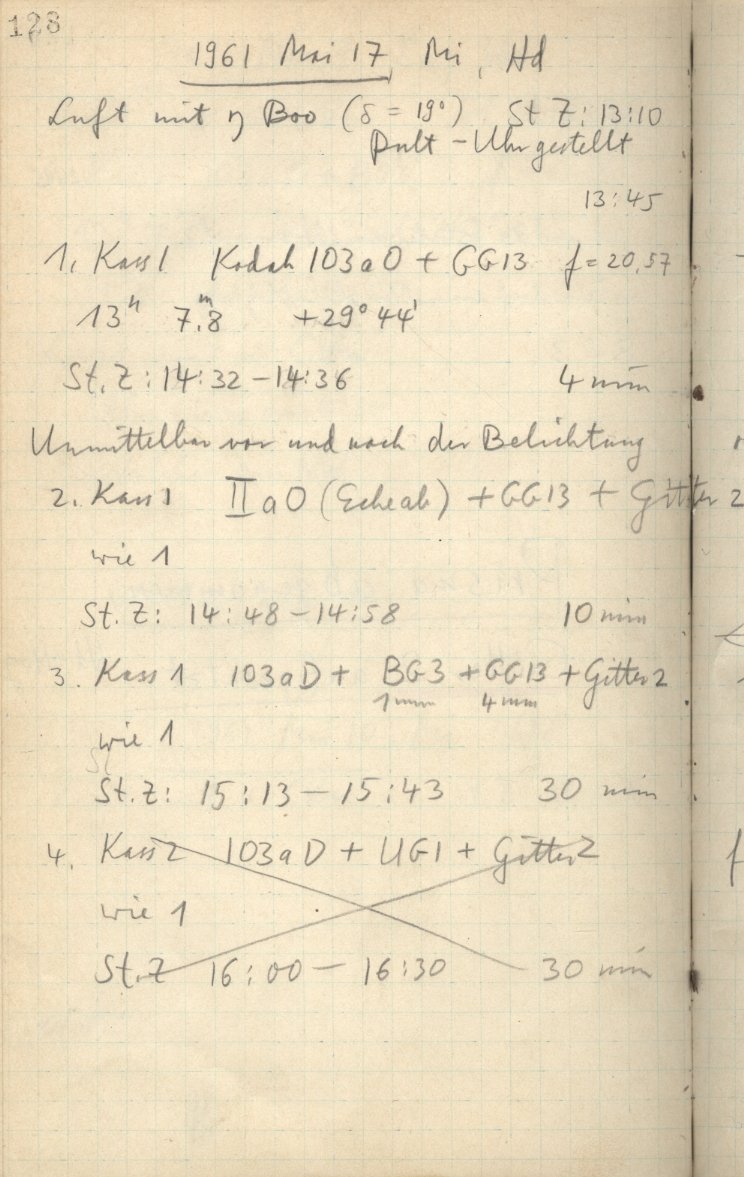 128
1961 Mai 17, Mi, Hd
Luft mit η Boo (δ = 19°) St Z: 13:10
Pult - Uhr gestellt
13:45
1. Kass 1 Kodak 103aO + GG13 f = 20,57
13ʰ 7.ᵐ8 +29° 44'
St. Z: 14:32 - 14:36 4 min
Unmittelbar vor und nach der Belichtung
2. Kass 1 IIaO (Echeab) + GG13 + Gitter 2
wie 1
St. Z: 14:48 - 14:58 10 min
3. Kass 1 103aD + BG3 + GG13 + Gitter 2
1mm 4mm
wie 1
St. Z: 15:13 - 15:43 30 min
4. Kass 2 103aD + UG1 + Gitter 2
wie 1
St. Z 16:00 - 16:30 30 min